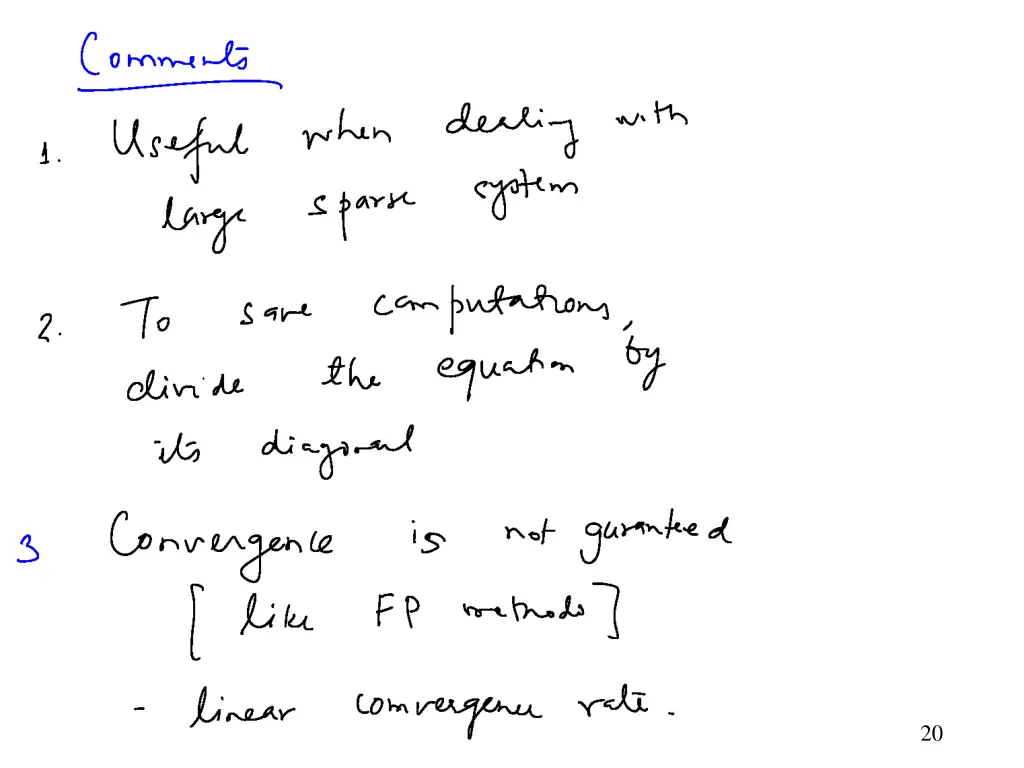 Comments
1. Useful when dealing with
large sparse system
2. To save computations,
divide the equation by
its diagonal
3 Convergence is not guranteed
[like FP methods]
- linear convergence rate.
20